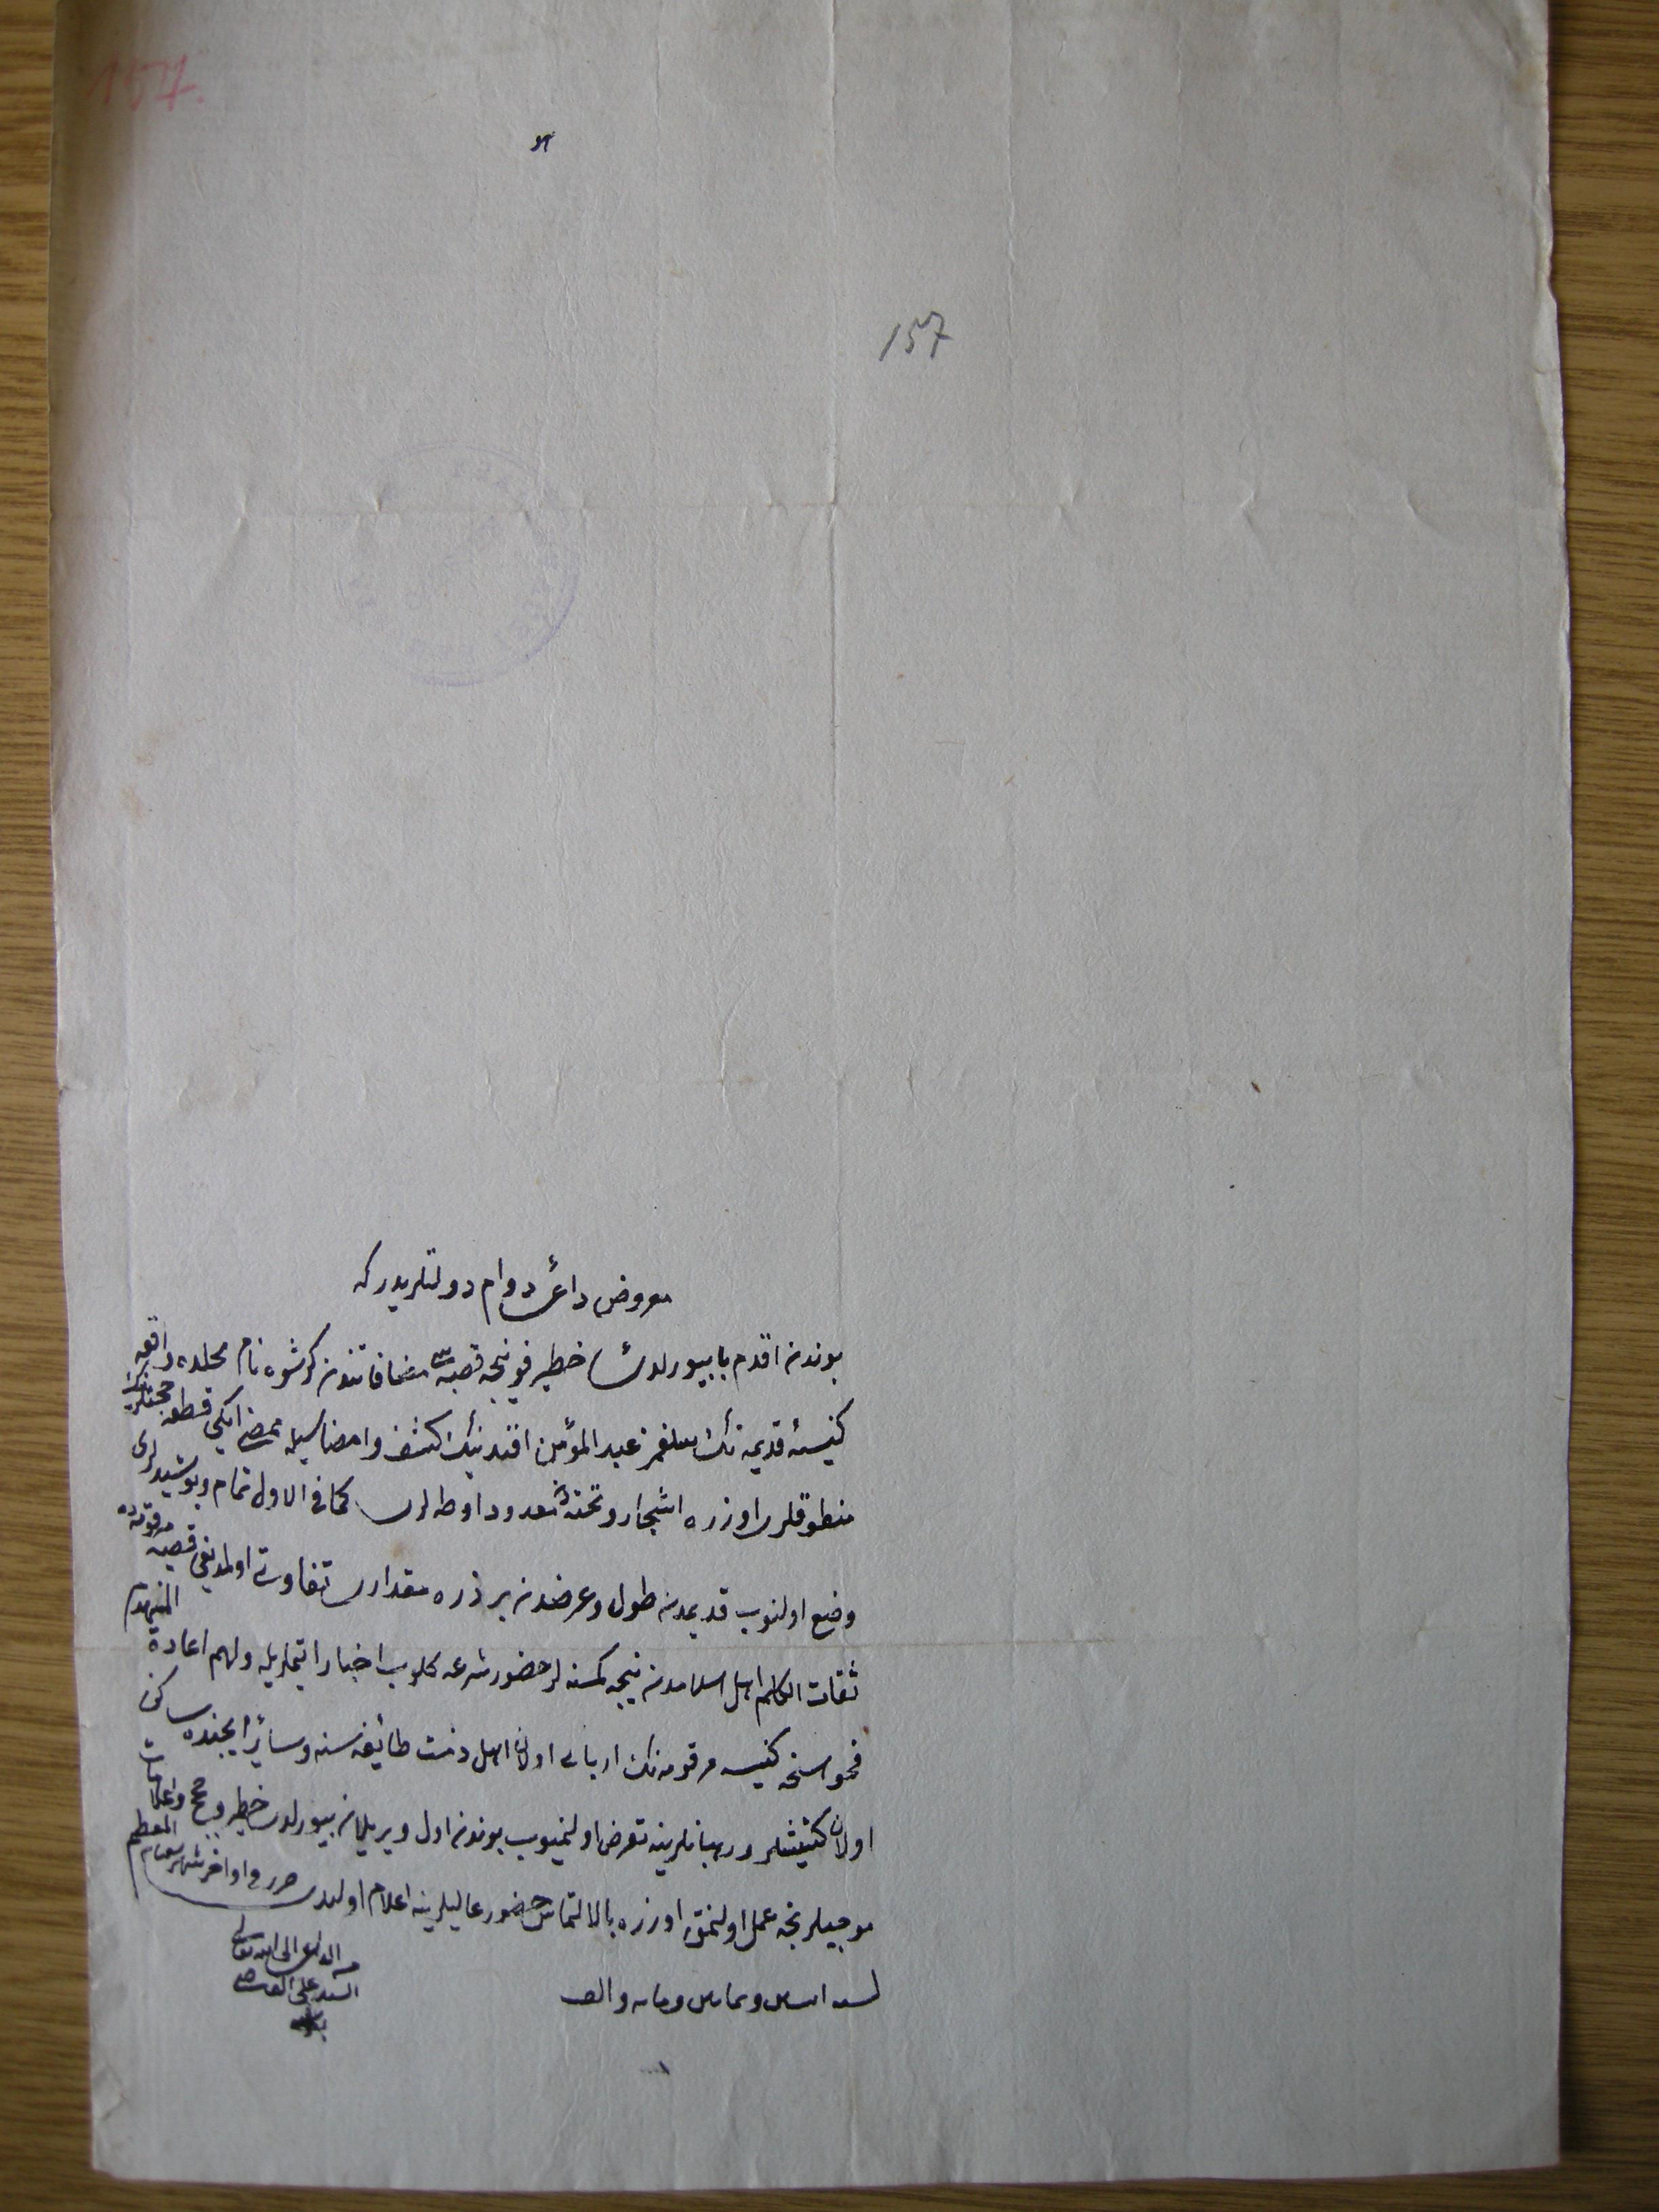 157.
157
معروض داعئ دوام دولتلريدركه
بوندن اقدم با بيورلدئ خطير فوينجه قصبه‌سى مضافاتندن كرشوه نام محلده واقعه
كنيسۀ قديمه نك سلفمز عبد المؤمن افندينك كشف وامضاسيله ممضى ايكى قطعه حجتلرينك
منطوقلرى اوزره اشجار وتخته معدود اوطه‌لرى كما فى الاول تمام وپوشيده‌لرى
وضع اولنوب قديمدن طول وعرضدن بر ذره مقدارى تفاوتى اولمديغى قصبه مرقومه‌ده
ثقات الكلم اهل اسلامدن نيجه كمسنه‌لر حضور شرعه كلوب اخبار ايتملريله ولهم اعادة المنهدم
فحواسنجه كنيسه مرقومه‌نك اربابى اولان اهل ذمت طائفه‌سنه وسائر ايچنده ساكن
اولان كشيشلر ورهبانلرينه تعرض اولنميوب بوندن اول ويريلان بيورلدى خطير وحجج واعلامات
موجبلرنجه عمل اولنمق اوزره بالالتماس حضور عاليلرينه اعلام اولندى حرر فى اواخر شهر شعبان المعظم
لسنه اثنين وثمانين ومائه والف
من الداعى الى الله تعالى
السيد على القاضى